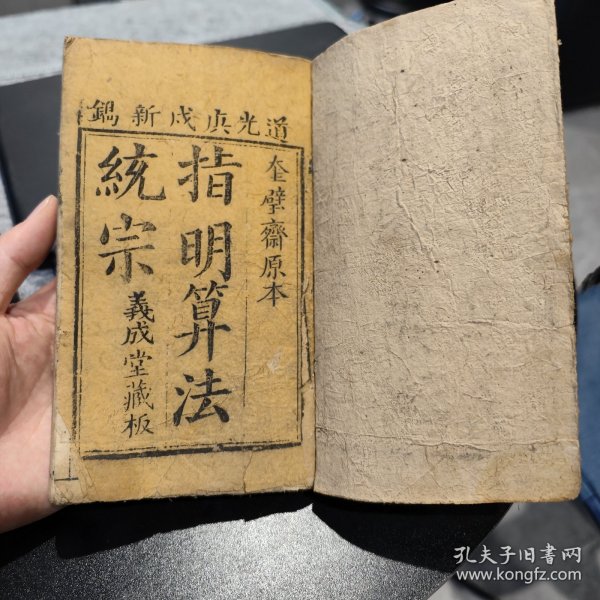 道光庚戌新鐫
奎壁齋原本
指明算法
統宗
義成堂藏板
孔夫子旧书网
www.kongfz.com